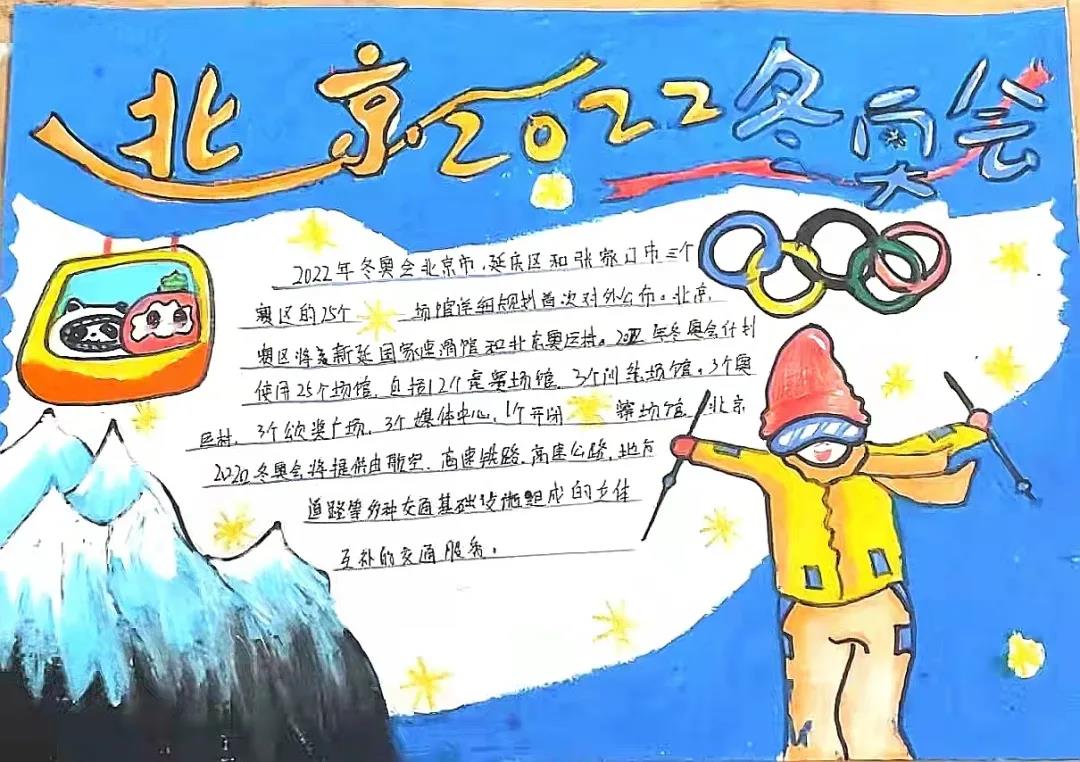 北京2022冬奥会
2022年冬奥会北京市、延庆区和张家口市三个
赛区的25个 场馆详细规划首次对外公布。北京
赛区将新 国家速滑馆和北京奥运村。2022年冬奥会计划
使用25个场馆,包括12个竞赛场馆、3个训练场馆。3个奥
运村、3个颁奖广场、3个媒体中心、1个开闭 场馆、北京
2020冬奥会将提供由航空、高速铁路、高速公路、地方
道路等多种交通基础设施组成的立体
互补的交通服务。